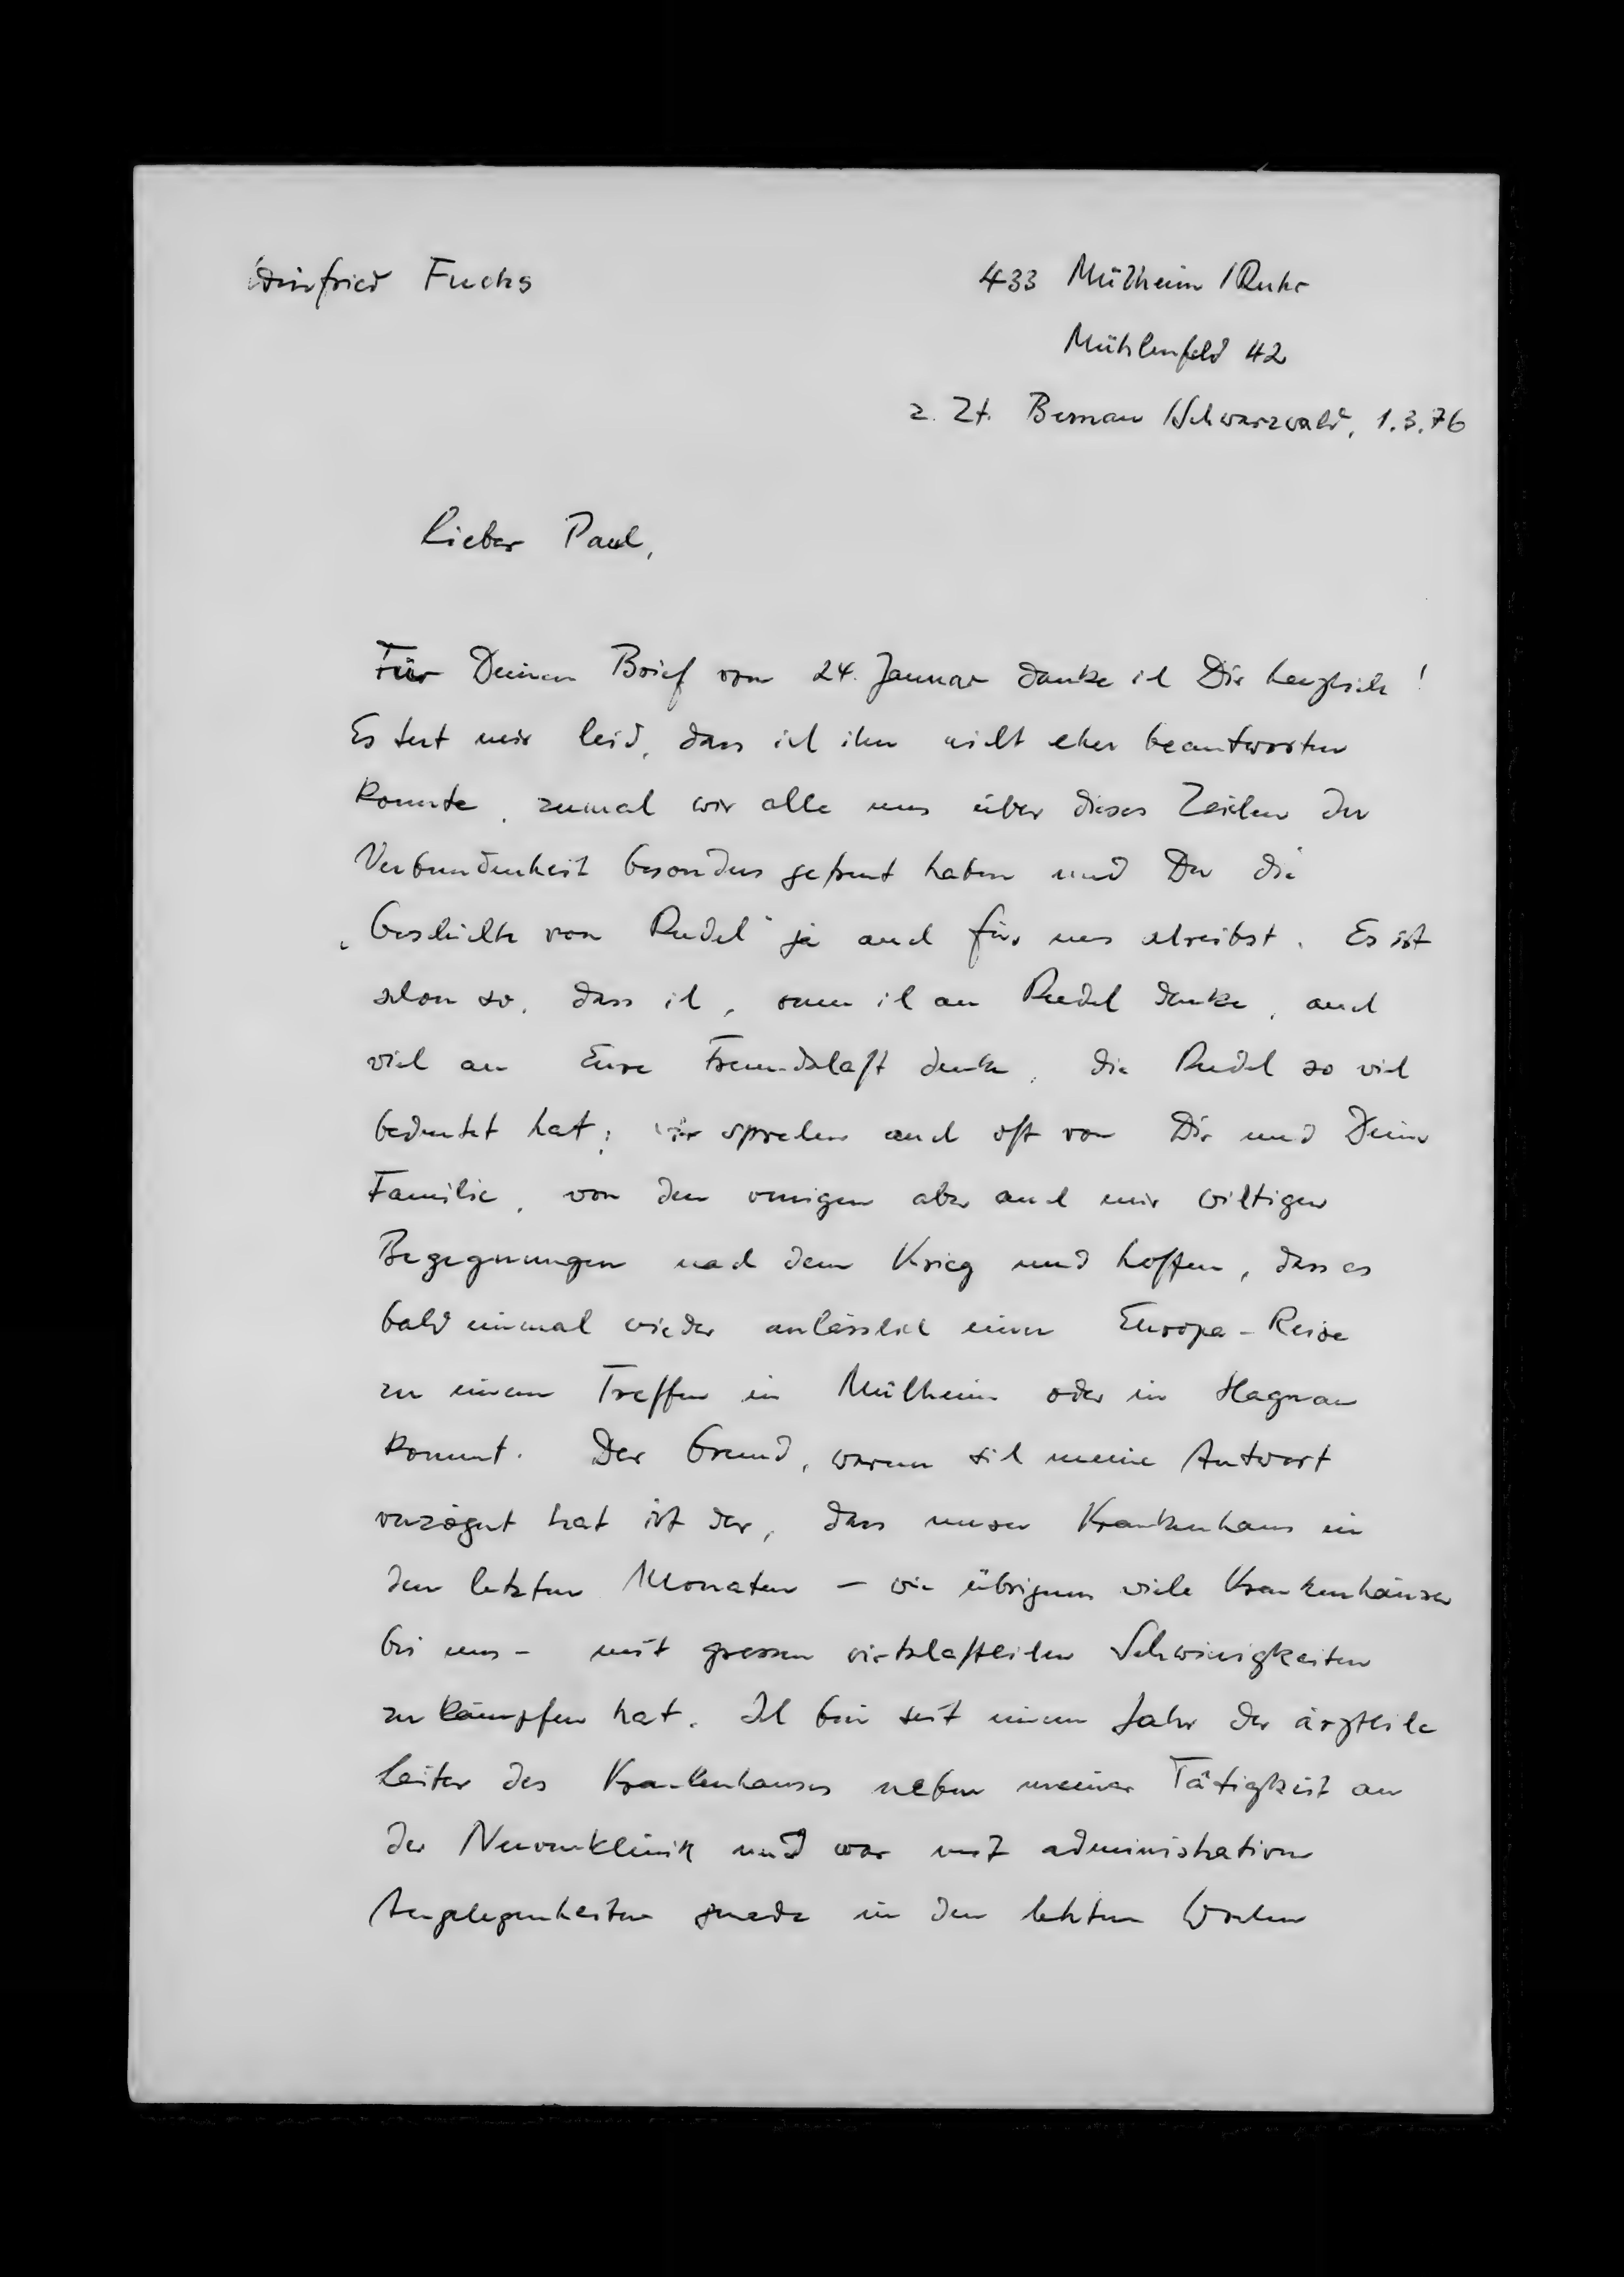 Winfried Fuchs
433 Mülheim / Ruhr
Mühlenfeld 42
z. Zt. Bernau / Schwarzwald, 1.3.76
Lieber Paul,
Für Deinen Brief vom 24. Januar danke ich Dir herzlich!
Es tut mir leid, dass ich ihn nicht eher beantworten
konnte, zumal wir alle uns über dieses Zeichen der
Verbundenheit besonders gefreut haben und Du die
„Geschichte von Rudel" ja auch für uns schreibst. Es ist
schon so, dass ich, wenn ich an Rudel denke, auch
viel an Eure Freundschaft denke, die Rudel so viel
bedeutet hat; wir sprechen auch oft von Dir und Deiner
Familie, von den wenigen aber auch mir wichtigen
Begegnungen nach dem Krieg und hoffen, dass es
bald einmal wieder anlässlich einer Europa-Reise
zu einem Treffen in Mülheim oder in Hagnau
kommt. Der Grund, warum sich meine Antwort
verzögert hat ist der, dass unser Krankenhaus in
den letzten Monaten – wie übrigens viele Krankenhäuser
bei uns – mit grossen wirtschaftlichen Schwierigkeiten
zu kämpfen hat. Ich bin seit einem Jahr der ärztliche
Leiter des Krankenhauses neben meiner Tätigkeit an
der Nervenklinik und war mit administrativen
Angelegenheiten gerade in den letzten Wochen